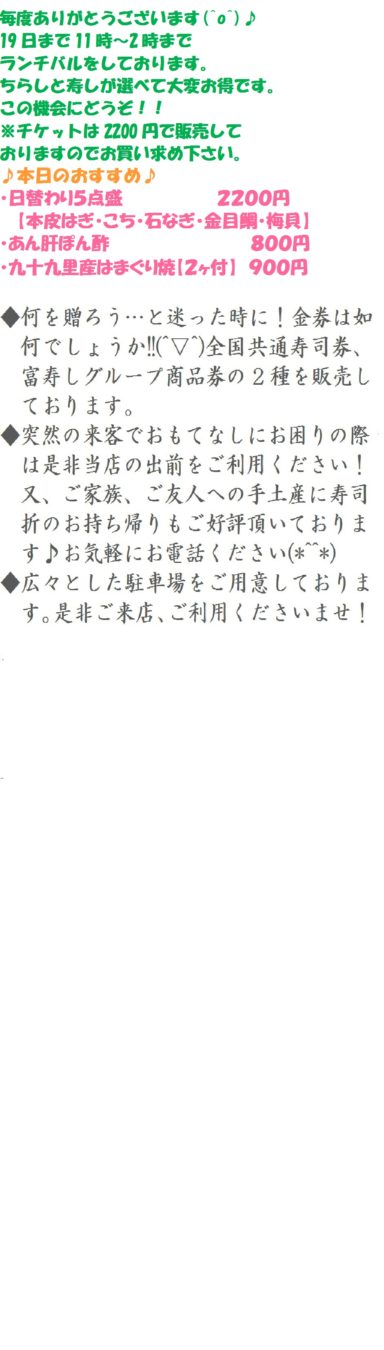 毎度ありがとうございます(^o^)♪
19日まで11時～2時まで
ランチバルをしております。
ちらしと寿しが選べて大変お得です。
この機会にどうぞ！！
※チケットは2200円で販売して
おりますのでお買い求め下さい。
♪本日のおすすめ♪
・日替わり5点盛 2200円
【本皮はぎ・こち・石なぎ・金目鯛・梅貝】
・あん肝ぽん酢 800円
・九十九里産はまぐり焼【2ヶ付】 900円
◆何を贈ろう…と迷った時に！金券は如
何でしょうか!!(^▽^)全国共通寿司券、
富寿しグループ商品券の２種を販売し
ております。
◆突然の来客でおもてなしにお困りの際
は是非当店の出前をご利用ください！
又、ご家族、ご友人への手土産に寿司
折のお持ち帰りもご好評頂いておりま
す♪お気軽にお電話ください(*^^*)
◆広々とした駐車場をご用意しておりま
す。是非ご来店、ご利用くださいませ！